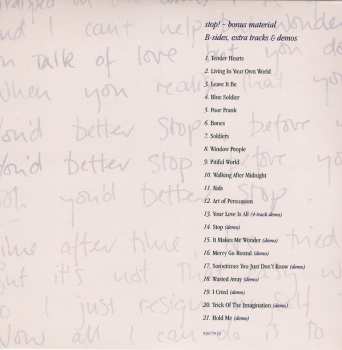 and I can't help wonder
stop! - bonus material
B-sides, extra tracks & demos
n Talk of love but you do
when you realise that yo
You'd better stop before y
You'd better stop before you
you'd better stop.
time after time I've tried
But it's not the
so I just resign myself
Now all I can do is to
1. Tender Hearts
2. Living In Your Own World
3. Leave It Be
4. Blue Soldier
5. Poor Frank
6. Bones
7. Soldiers
8. Window People
9. Pitiful World
10. Walking After Midnight
11. Kids
12. Art of Persuasion
13. Your Love Is All (4-track demo)
14. Stop (demo)
15. It Makes Me Wonder (demo)
16. Merry Go Round (demo)
17. Sometimes You Just Don't Know (demo)
18. Wasted Away (demo)
19. I Cried (demo)
20. Trick Of The Imagination (demo)
21. Hold Me (demo)